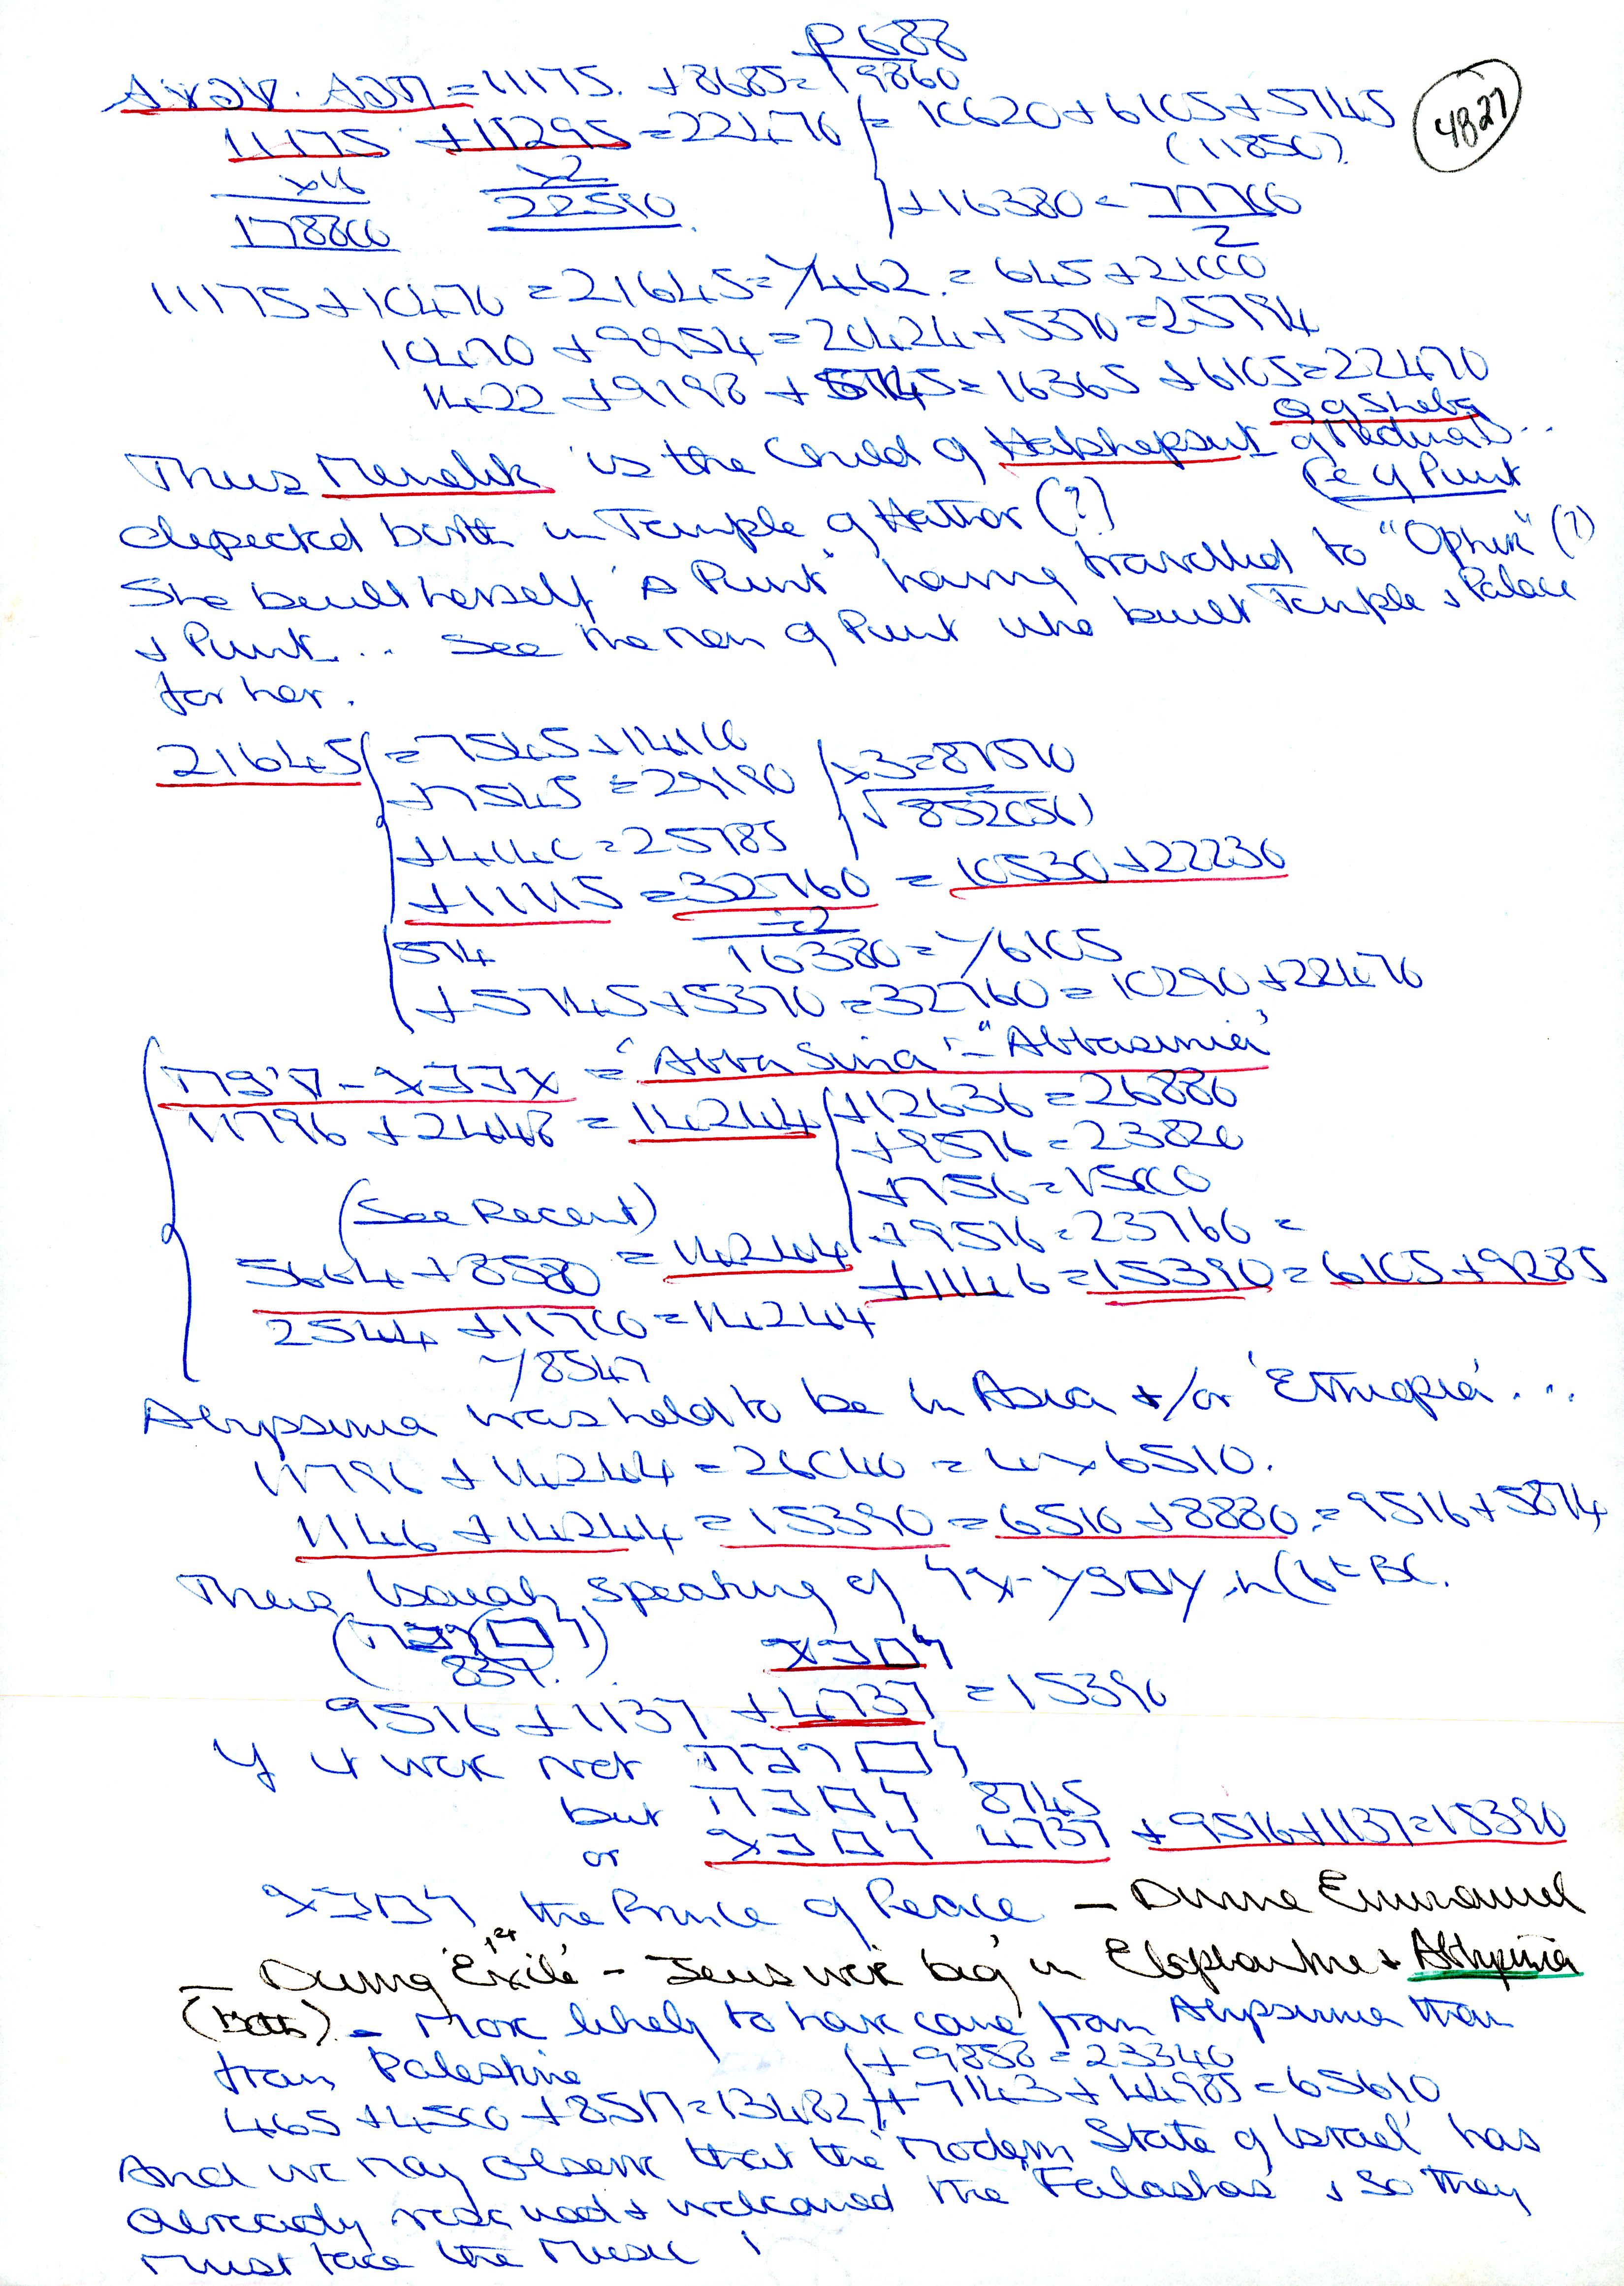 P 688
= 11175. + 8685 = 19860
4827
11175 + 11295 = 22470 = 10620 + 6105 + 5745
x16 x2 (11850)
178800 22590 + 16380 = 77700
2
11175 + 10470 = 21645 = Y462 = 645 + 21000
10470 + 9954 = 20424 + 5370 = 25794
1422 + 9198 + 5745 = 16365 + 6105 = 22470
Q of Sheba
Thus Menelik is the Child of Hatshepsut of Medinat ..
Pe of Punt
depicted birth in Temple of Hathor (?)
She built herself 'a Punt' having travelled to "Ophir" (?)
& Punt ... See the men of Punt who built Temple & Palace
for her.
21645 = 7545 + 14100
+ 7545 = 29190 x3 = 87570
+ 4140 = 25785 √852056)
+ 11115 = 32760 = 10530 + 22230
÷2
574 16380 = Y6105
+ 5745 + 5370 = 32760 = 10290 + 22470
= 'Abba Sina' = "Abbasinia'
11796 + 2448 = 14244 + 12636 = 26880
+ 9576 = 23820
+ 756 = 15000
(See Recent) + 9516 = 23760 =
5664 + 8580 = 14244 + 1146 = 15390 = 6105 + 9285
2544 + 11700 = 14244
Y8547
Abyssinia was held to be in Asia &/or 'Ethiopia' ...
11796 + 14244 = 26040 = 4 x 6510.
1146 + 14244 = 15390 = 6510 + 8880 = 9516 + 5874
Thus Isaiah speaking of in C6th BC.
837.
9516 + 1137 + 4737 = 15390
If it were not
but 8745
or 4737 + 9516 + 1137 = 15390
the Prince of Peace – Divine Emmanuel
– During 1st 'Exile' – Jews were big in Elephantine & Abyssinia
(both) – More likely to have come from Abyssinia than
from Palestine + 9858 = 23340
465 + 4500 + 8517 = 13482 + 7143 + 44985 = 65610
And we may observe that the 'Modern State of Israel' has
already rescued & welcomed the 'Falashas' & so they
must face the Music !